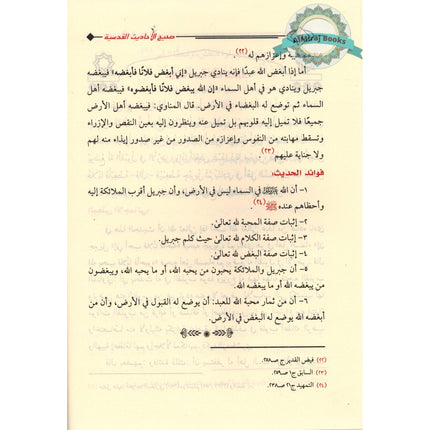 AlMiraj Books
صحيح الأحاديث القدسية
وإعزازهم له (٢٢).
أما إذا أبغض الله عبدًا فإنه ينادي جبريل «إني أبغض فلانًا فأبغضه» فيبغضه
جبريل وينادي هو في أهل السماء «إن الله يبغض فلانًا فأبغضوه» فيبغضه أهل
السماء ثم توضع له البغضاء في الأرض. قال المناوي: فيبغضه أهل الأرض
جميعًا فلا تميل إليه قلوبهم بل تميل عنه وينظرون إليه بعين النقص والإزراء
وتسقط مهابته من النفوس وإعزازه من الصدور من غير صدور إيذاء منه لهم
ولا جناية عليهم (٢٣).
فوائد الحديث:
١- أن الله ﷻ في السماء ليس في الأرض، وأن جبريل أقرب الملائكة إليه
وأحظاهم عنده ﷺ (٢٤).
٢- إثبات صفة المحبة لله تعالى.
٣- إثبات صفة الكلام لله تعالى حيث كلم جبريل.
٤- إثبات صفة البغض لله تعالى.
٥- أن جبريل والملائكة يحبون من يحبه الله، أو ما يحبه الله، ويبغضون
من يبغضه الله أو ما يبغضه الله.
٦- أن من ثمار محبة الله للعبد: أن يوضع له القبول في الأرض، وأن من
أبغضه الله يوضع له البغض في الأرض.
(٢٢) فيض القدير ج ص٢٥٨.
(٢٣) السابق ج١ ص٢٥٩.
(٢٤) التمهيد ج٢١ ص٢٣٨.